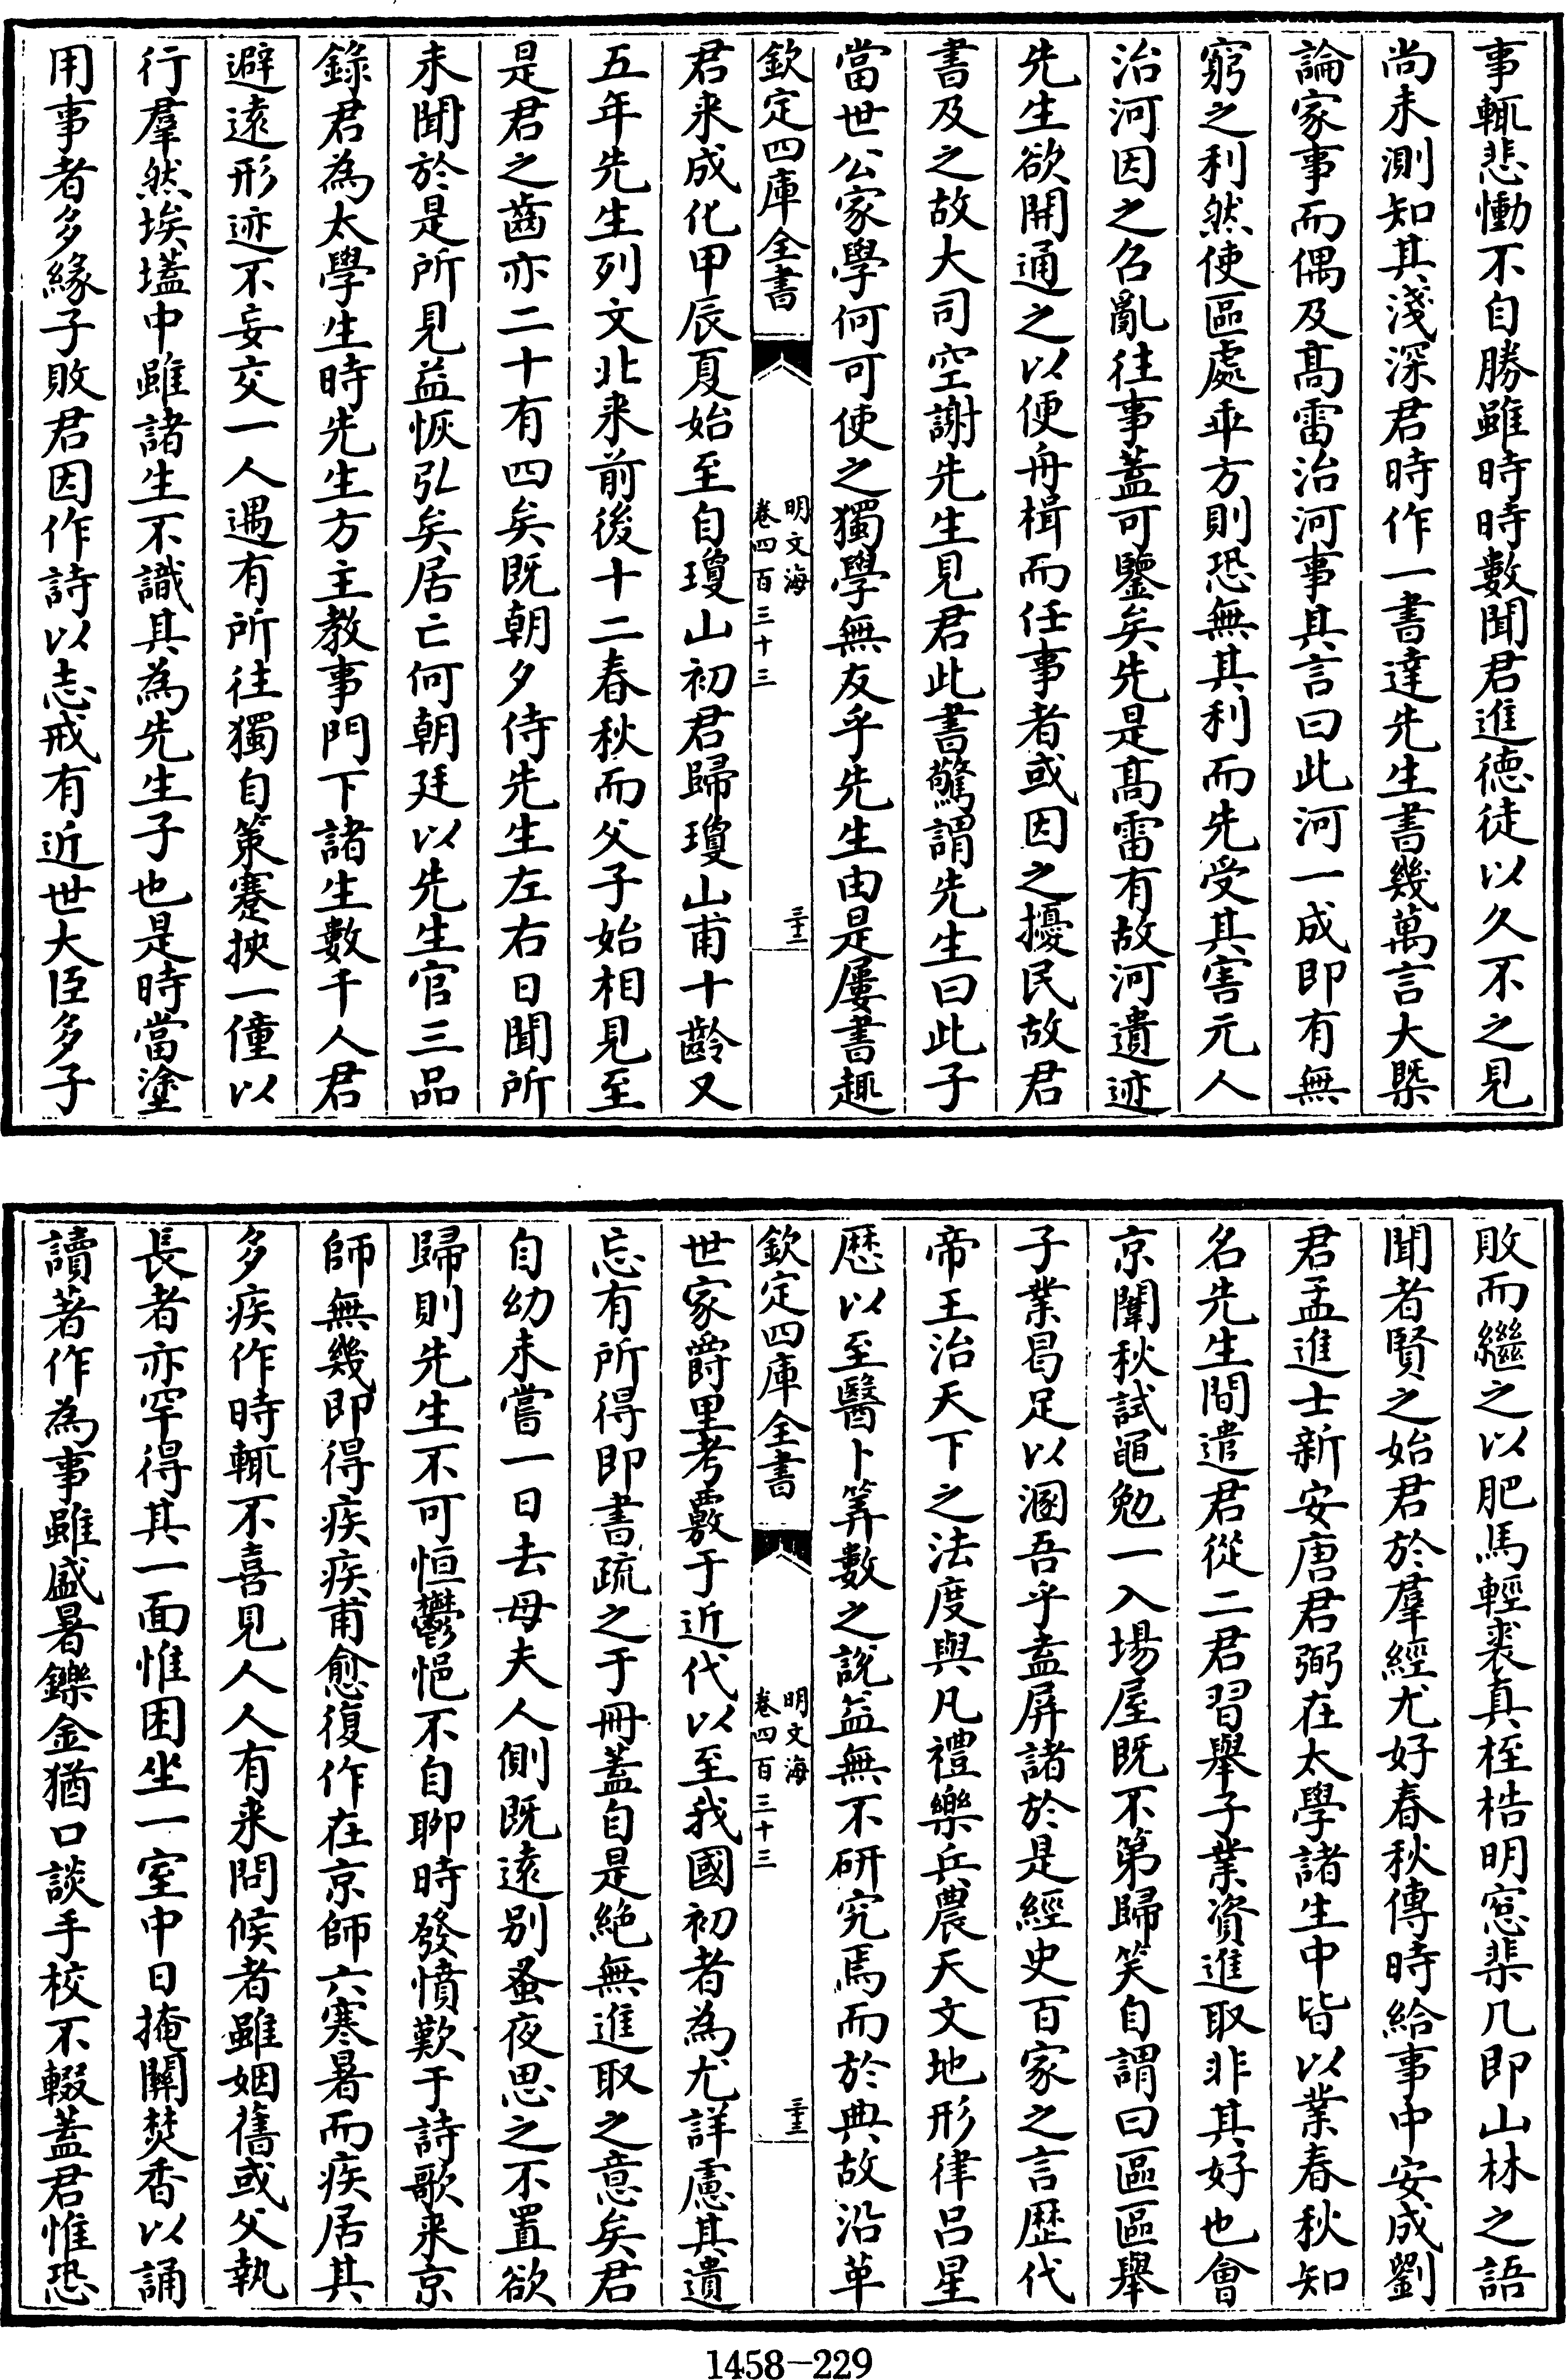 事輒悲慟不自勝雖時時數聞君進德徒以久不之見
尚未測知其淺深君時作一書達先生書幾萬言大槩
論家事而偶及髙雷治河事其言曰此河一成即有無
窮之利然使區處乖方則恐無其利而先受其害元人
治河因之召亂往事蓋可鑒矣先是髙雷有故河遺迹
先生欲開通之以便舟楫而任事者或因之擾民故君
書及之故大司空謝先生見君此書驚謂先生曰此子
當世公家學何可使之獨學無友乎先生由是屢書趣
欽定四庫全書
明文海
卷四百三十三
三十二
君来成化甲辰夏始至自瓊山初君歸瓊山甫十齡又
五年先生列文北来前後十二春秋而父子始相見至
是君之齒亦二十有四矣既朝夕侍先生左右日聞所
未聞於是所見益恢弘矣居亡何朝廷以先生官三品
錄君為太學生時先生方主教事門下諸生數千人君
避遠形迹不妄交一人遇有所往獨自策蹇挾一僮以
行羣然埃壒中雖諸生不識其為先生子也是時當塗
用事者多緣子敗君因作詩以志戒有近世大臣多子
敗而繼之以肥馬輕裘真桎梏明窓棐几即山林之語
聞者賢之始君於羣經尤好春秋傳時給事中安成劉
君孟進士新安唐君弼在太學諸生中皆以業春秋知
名先生間遣君從二君習舉子業資進取非其好也會
京闈秋試黽勉一入場屋既不第歸笑自謂曰區區舉
子業曷足以溷吾乎盍屏諸於是經史百家之言歴代
帝王治天下之法度與凡禮樂兵農天文地形律呂星
厯以至醫卜筭數之說益無不研究焉而於典故沿革
欽定四庫全書
明文海
卷四百三十三
三十三
世家爵里考覈于近代以至我國初者為尤詳慮其遺
忘有所得即書疏之于冊蓋自是絶無進取之意矣君
自幼未嘗一日去母夫人側既遠别蚤夜思之不置欲
歸則先生不可恒鬱悒不自聊時發憤歎于詩歌来京
師無幾即得疾疾甫愈復作在京師六寒暑而疾居其
多疾作時輒不喜見人人有来問候者雖姻舊或父執
長者亦罕得其一面惟困坐一室中日掩關焚香以誦
讀著作為事雖盛暑鑠金猶口談手校不輟蓋君惟恐
1458-229